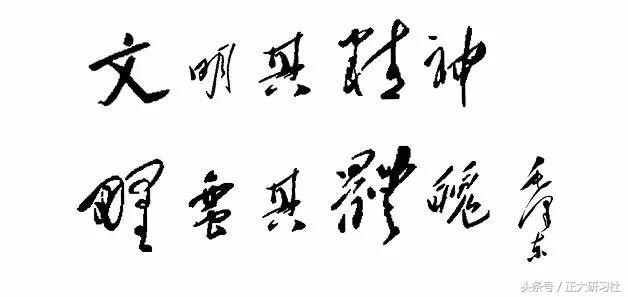 文明其精神
野蛮其體魄 毛泽东
头条号 / 正大研习社